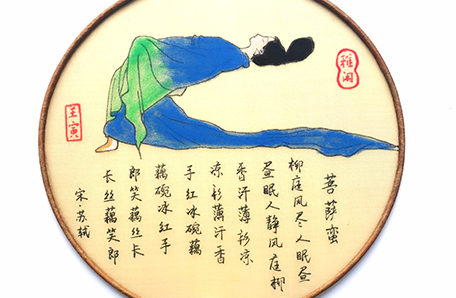 雅闲
壬寅
菩萨蛮
柳庭风尽人眠昼
昼眠人静风庭柳
香汗薄衫凉
凉衫薄汗香
手红冰碗藕
藕碗冰红手
郎笑藕丝长
长丝藕笑郎
宋·苏轼